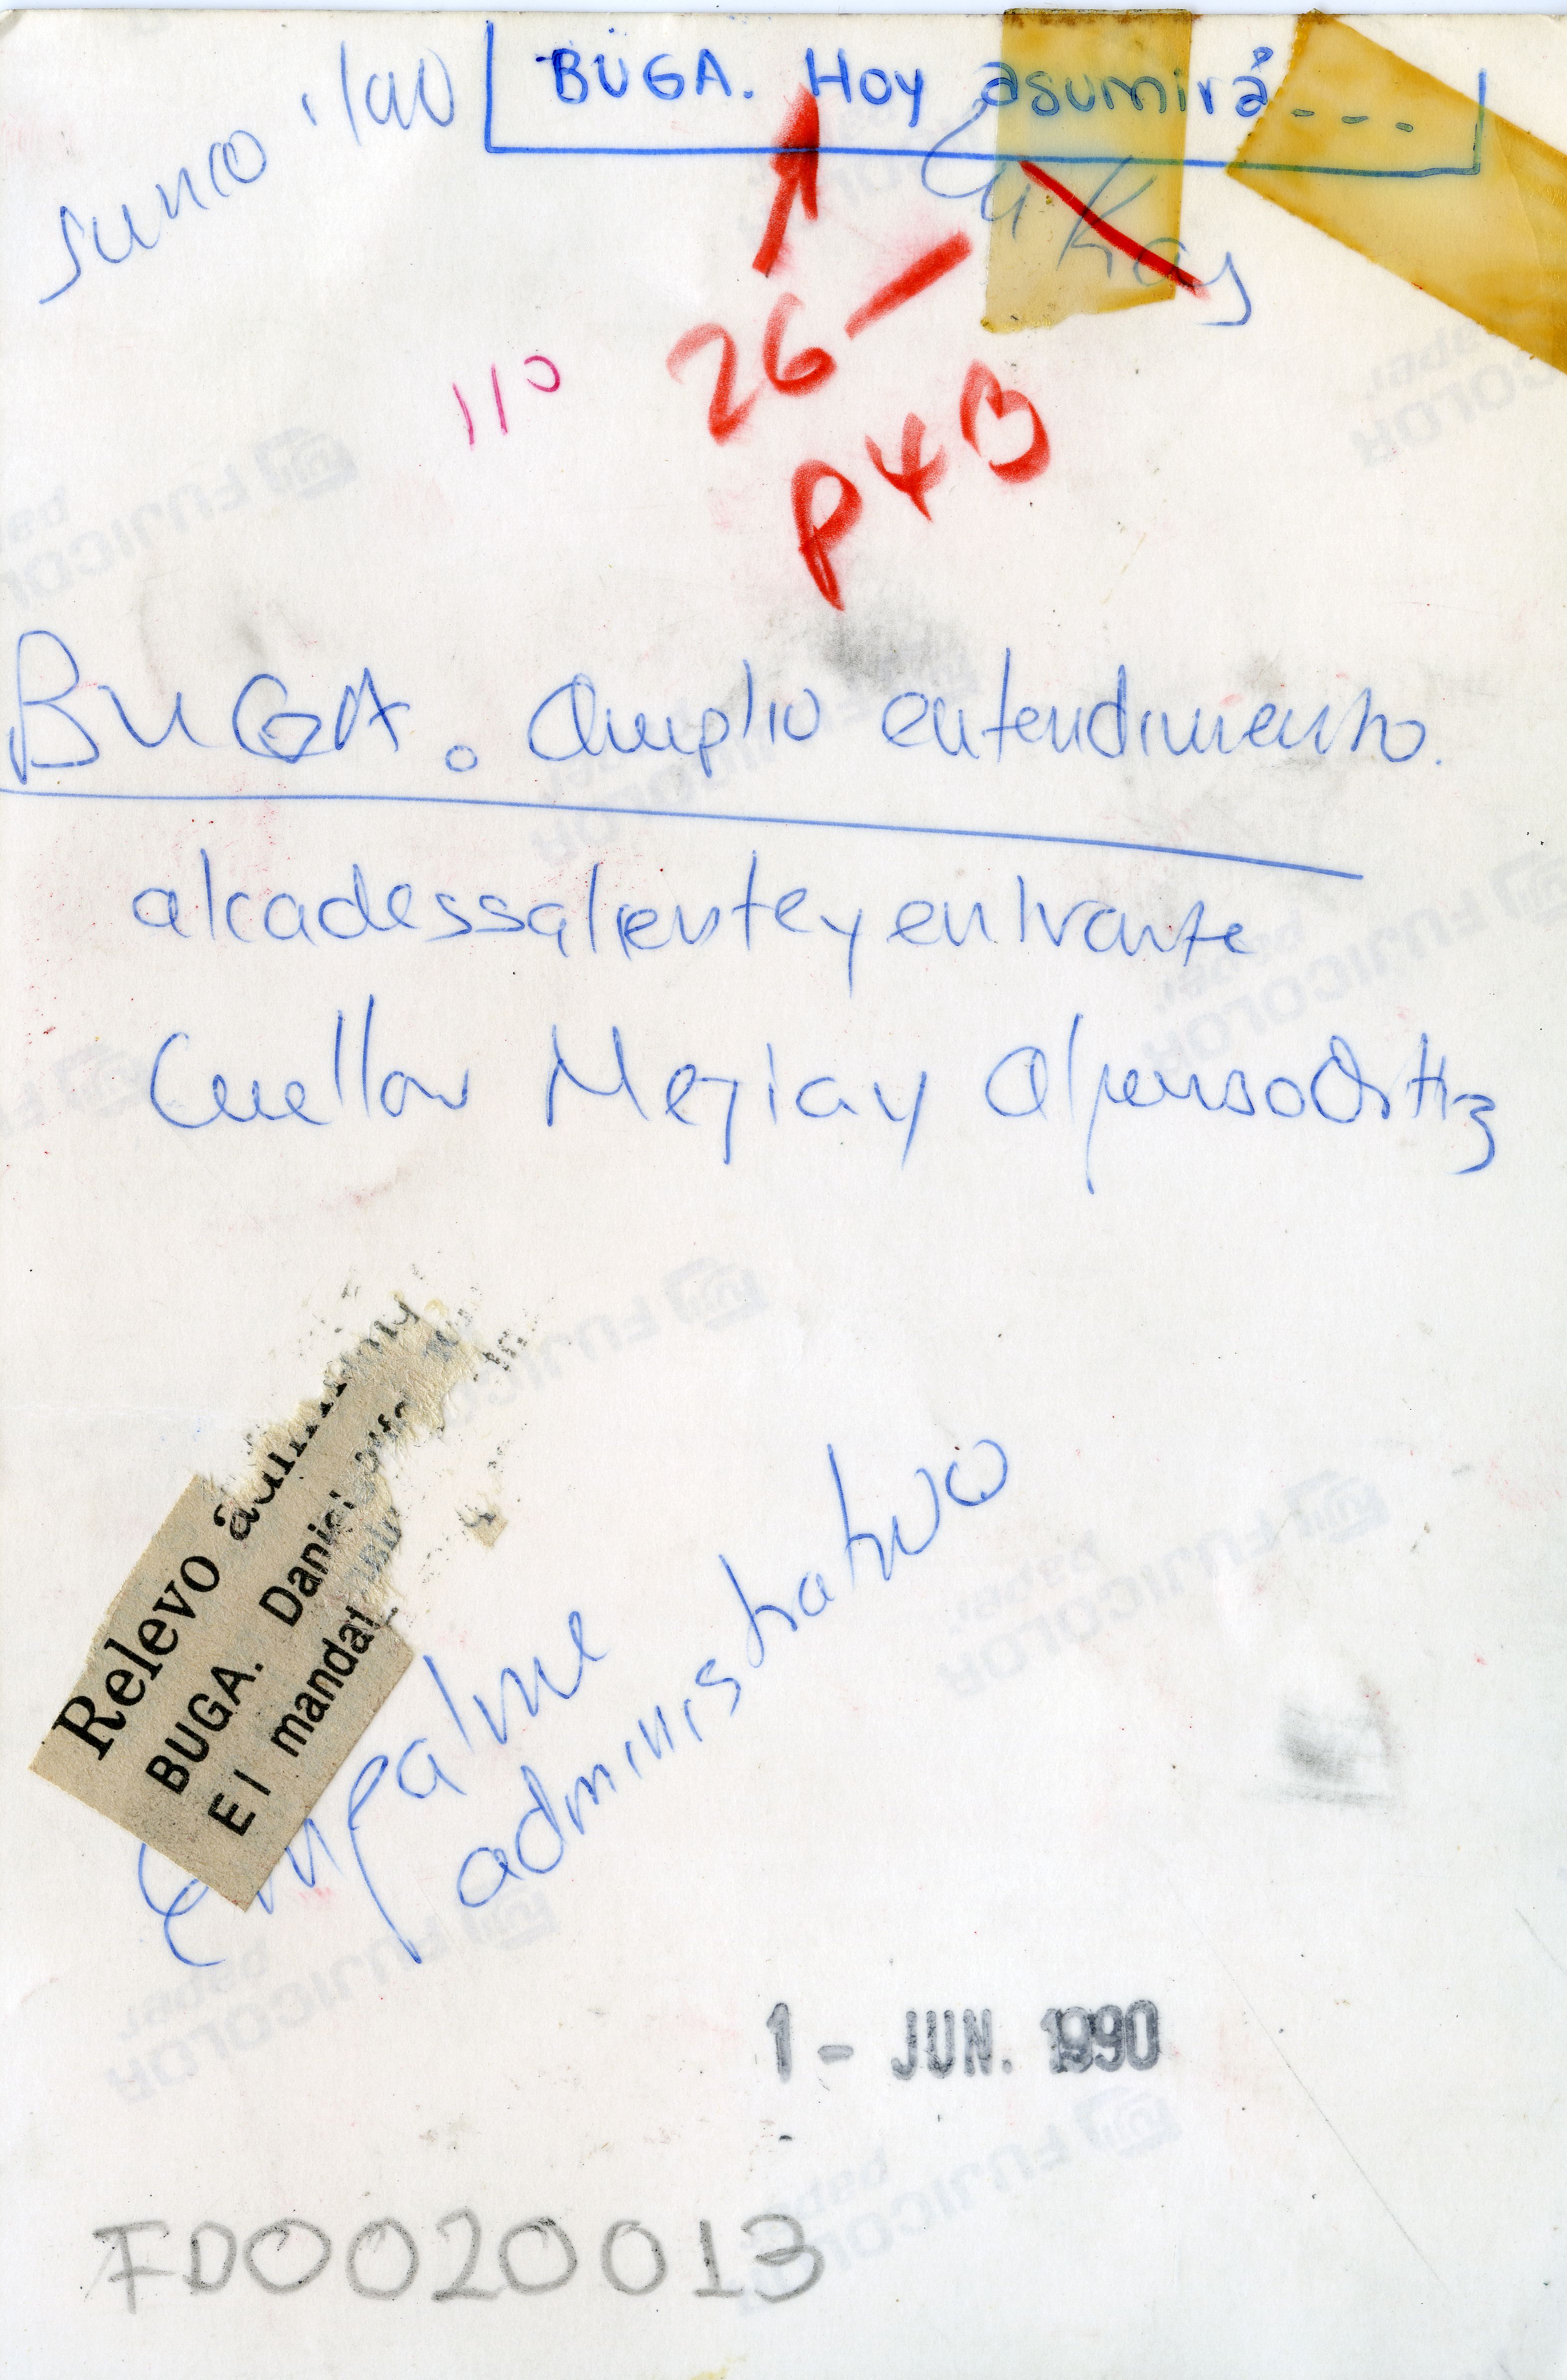 BUGA. Hoy asumirá - - -
Junio 1/90
26 -
110
P4B
BUGA. Amplio entendimiento.
alcadessaliente y entrante
Cuellar Mejia y Alfonso Ortiz
Relevo
BUGA. Daniel
El mandat
Empalme
administrativo
1 - JUN. 1990
FD0020013
FUJICOLOR
paper